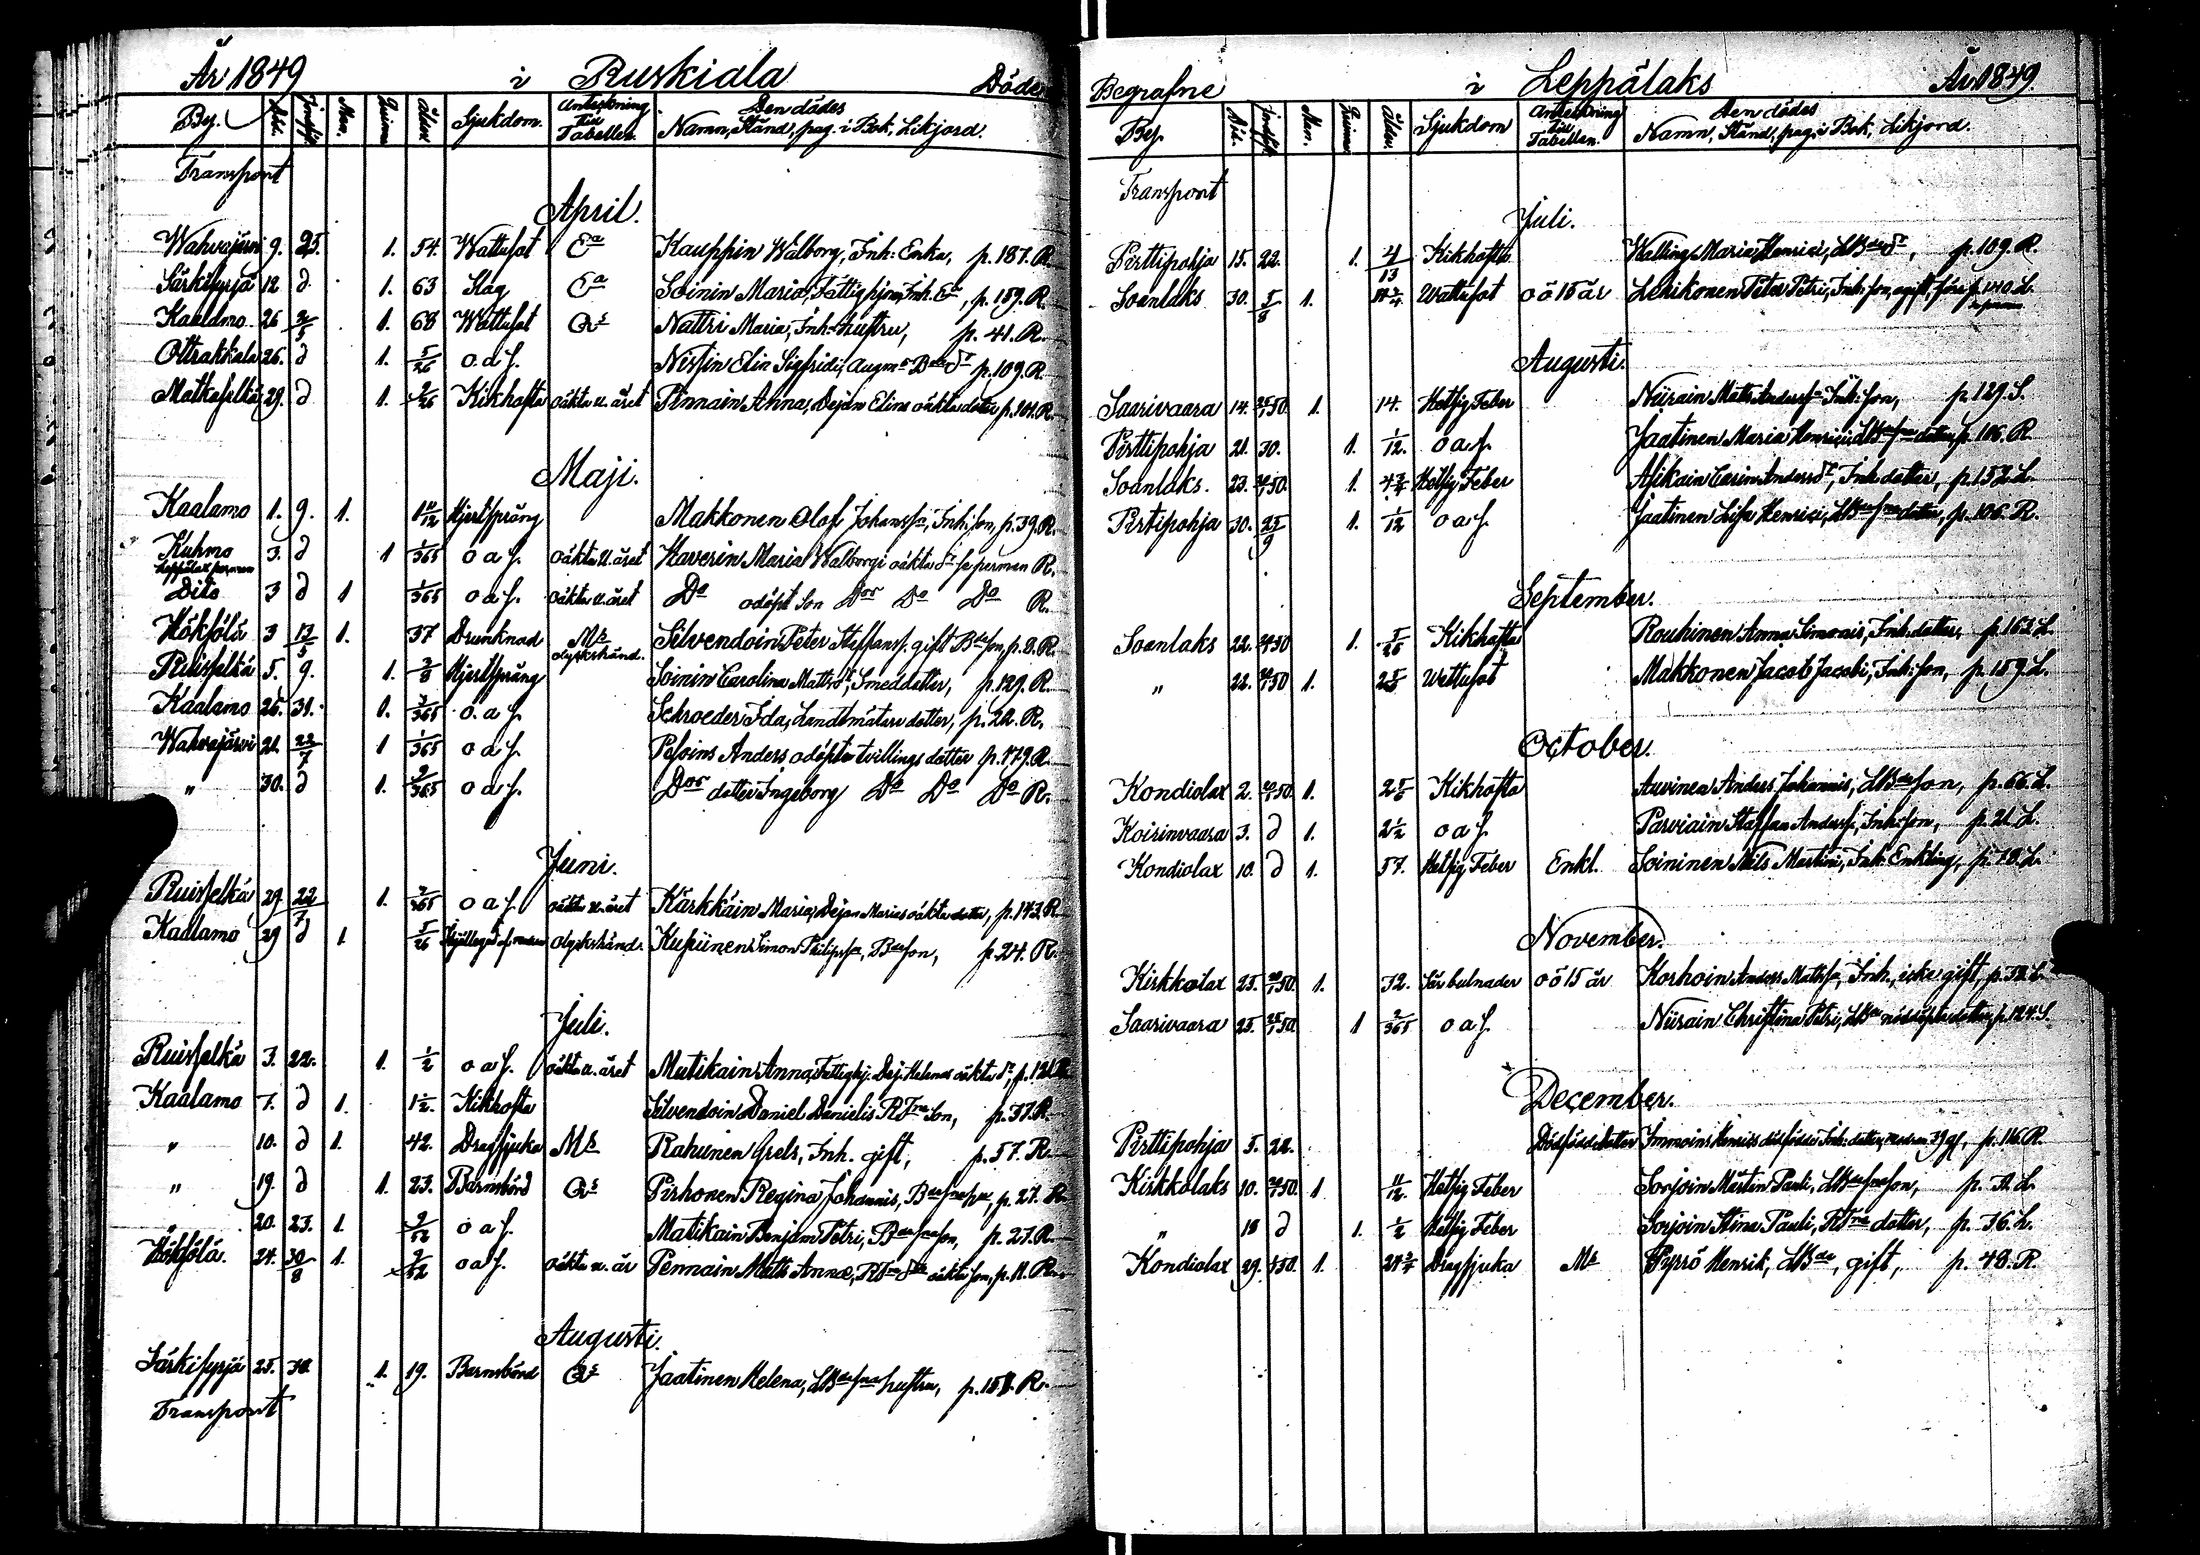 År 1849 i Ruskiala Döde
By. Död. Jordf. Män. Quinn. Ålder Sjukdom. Anteckning till Tabellen. Den dödes Namn, Stånd, pag. i Bok, Likjord.
Transport
April.
Wahvajärvi 9. 25. 1. 54. Wattusot Ea Kauppin Walborg, Inh: Enka, p. 187. R.
Särkisyrjä 12 d 1. 63 Slag Ea Soinin Maria, Fattighjon, Inh. Ea, p. 159. R.
Kaalamo 26 1. 68 Wattusot Nattri Maria, Inh: hustru, p. 41. R.
Ottrakkala 26. d 1. 5/26 o.a.s. Nissin Elin Sigfridi, p. 109. R.
Matkaselkä 29. d 1. 2/26 Kikhosta oäkta u. året Pennain Anna, Dejan Elins oäkta dotter p. 101. R.
Maji.
Kaalamo 1. 9. 1. 1 11/12 Hjertsprång Makkonen Olof Johanss:, Inh: son, p. 39. R.
Kuhmo 3. d 1 1/365 o a s. oäkta u. året Haverin Maria Walborgi oäkta R.
Dito 3 d 1 1/365 o a s. oäkta u. året Do odöpt son Dos Do Do R.
Hökfölä 3 13/5 1. 37 Drunknad Mr olyckshänd. Silvendoin Peter Staffanss. gift Bde son, p. 8. R.
Ruisselkä 5. 9. 1. 3/8 Hjertsprång Soinin Carolina Mattsdr, Smeddotter, p. 129. R.
Kaalamo 26. 31. 1. 2/365 o. a s. Schroeder Ida, Landtmätare dotter, p. 22. R.
Wahvajärvi 21. 22/7 1 1/365 o a s. Peloins Anders odöpta tvillings dotter p. 179. R.
" 30. d 1. 9/365 o a s. Dos dotter Ingeborg Do Do Do R.
Juni.
Ruisselkä 29. 22/7 1. 2/365 o a s. oäkta u. året Kärkkäin Maria, Dejan Marias oäkta dotter, p. 143. R.
Kaalamo 29 d 1 5/26 olyckshänd. Kupiinen Simon Philipss:, Bde son, p. 24. R.
Juli.
Ruisselkä 3. 22. 1. 1/2 o a s. oäkta u. året Mutikain Anna, Fattighj. Dej. Helenas oäkta dr, p. R.
Kaalamo 7. d 1. 1 1/2. Kikhosta Silvendoin Daniel Danielis son, p. 37. R.
" 10. d 1. 42. Dragsjuka Mr Rahunen Grels, Inh. gift, p. 57. R.
" 19. d 1. 23. Barnsbörd Pirhonen Regina Johannis, p. 27. R.
20. 23. 1. 9/52 o a s. Matikain Benjam Petri, p. 27. R.
Hökfölä. 24. 30/8 1. o a s. oäkta u. år Pennain Matts Annæ, oäkta son, p. 11. R.
Augusti.
Särkisyrjä 25. 30. 1. 19. Barnsbörd Jaatinen Helena, hustru, R.
Transport
Begrafne i Leppälaks År 1849.
By. Död. Jordf. Män. Quinn. Ålder Sjukdom Anteckning till Tabellen. Den dödes Namn, Stånd, pag. i Bok, Likjord.
Transport
Juli.
Pirttipohja 15. 22. 1. 4/13 Kikhosta Walling Maria Henrici, p. 109. R.
Soanlaks 30. 5/8 1. Wattusot o ö 15 år Lehikonen Peter Petri, Inh: son, ogift, p. 140. L.
Augusti.
Saarivaara 14. 1. 14. Hetsig Feber Niirain Matts Anderss:, Inh: son, p. 129. S.
Pirttipohja 21. 30. 1. 1/12. o a s. Jaatinen Maria Henrici, dotter p. 106. R.
Soanlaks. 23. 1. Hetsig Feber Asikain Carin Andersdr, Inh: dotter, p. 152. L.
Pirttipohja 30. 25/9 1. 1/12 o a s. Jaatinen Lisa Henrici, dotter, p. 106. R.
September.
Soanlaks 22. 1. 5/26 Kikhosta Rouhinen Anna Simonis, Inh: dotter, p. 163. L.
" 22. 1. Wattusot Makkonen Jacob Jacobi, Inh: son, p. 159. L.
October.
Kondiolax 2. 1. Kikhosta Auvinen Anders Johannis, son, p. 66. L.
Koirinvaara 3. d 1. 2 1/2 o a s. Parviain Staffan Anderss:, Inh: son, p. 21. L.
Kondiolax 10. d 1. 57. Hetsig Feber Enkl. Soininen Nils Martini, Inh: Enkling, p. 78. L.
November.
Kirkkolax 25. 1. 32. Sår bulnader o ö 15 år Korhoin Anders Mattss:, Inh., icke gift, p. 32. L.
Saarivaara 25. 1 2/365 o a s. Niirain Christina Petri, nöddöpta dotter, p. 124. S.
December.
Pirttipohja 5. 22. Dödfödd dotter Immoins Henrics dödfödda Inh: dotter, modren 39 gl, p. 116. R.
Kirkkolaks 10. 1 11/12. Hetsig Feber Sorjoin Mårtin Pauli, son, L.
" 18 d 1. 1/2 Hetsig Feber Sorjoin Stina Pauli, dotter, p. 36. L.
Kondiolax 29. 1. Dragsjuka Mr Pyrrö Henrik, gift, p. 48. R.